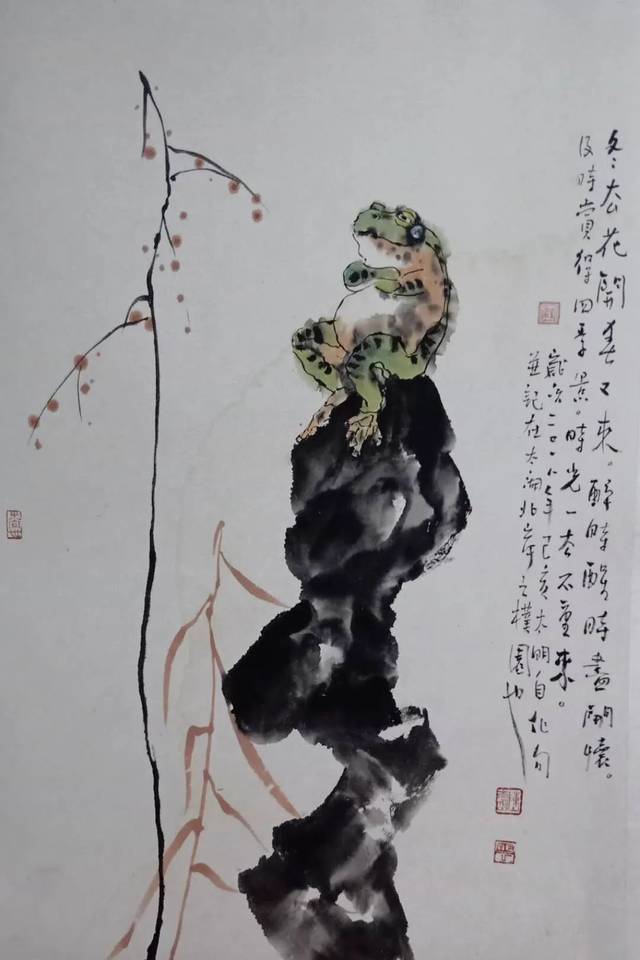 冬去花開春又來。醉時醒時盡開懷。
及時賞得四季景。時光一去不重來。
年己亥太明自作句
並記在太湖北岸之樸園也